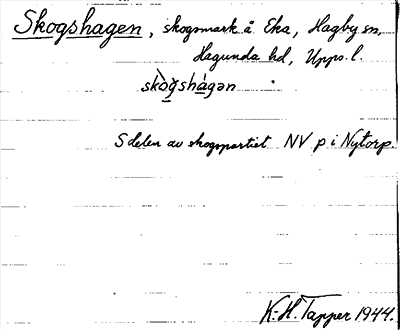 Skogshagen, skogsmark å Eka, Hagby sn,
Hagunda hd, Upps. l.
skògshágən
S delen av skogspartiet NV p i Nytorp.
K.-H. Tapper 1944.